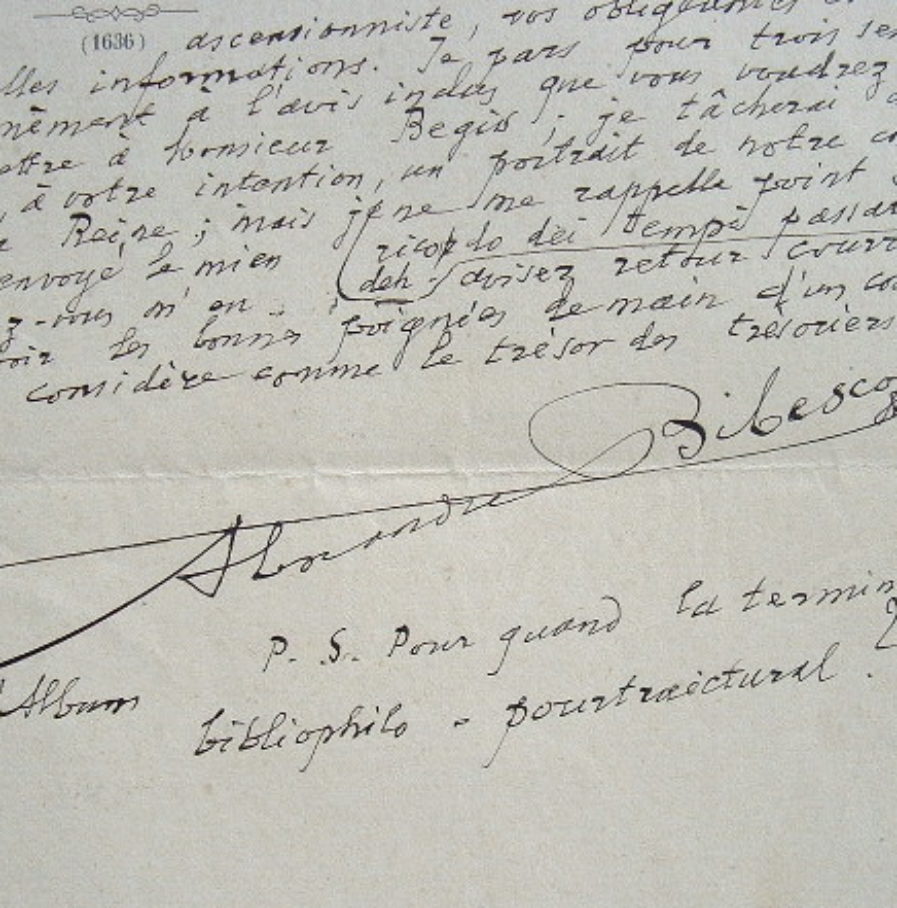 (1636)
ascensionniste, vos
lles informations. Je pars pour trois se
nément à l'avis inclus que vous voudrez
ettre à Monsieur Bégis ; je tâcherai
, à votre intention, un portrait de notre co
Reine ; mais je ne me rappelle point
envoyé le mien (ricordo dei tempi passa
z-vous m'en deh avisez retour courr
oir les bonnes poignées de main d'un co
considère comme le trésor des trésoriers
Alexandre Bibesco
P. S. Pour quand la termin
Album bibliophilo - pourtraictural.